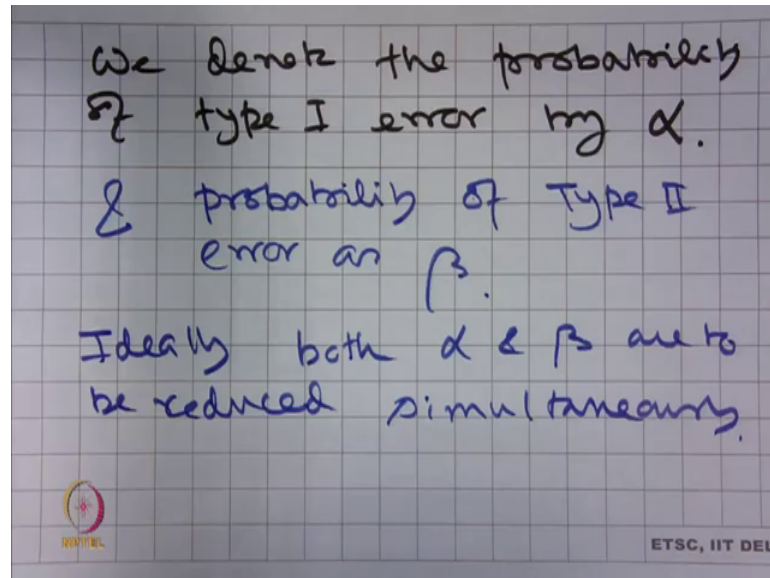 We denote the probability
of type I error by α.
& probability of Type II
error as β.
Ideally both α & β are to
be reduced simultaneously.
NPTEL
ETSC, IIT DEL